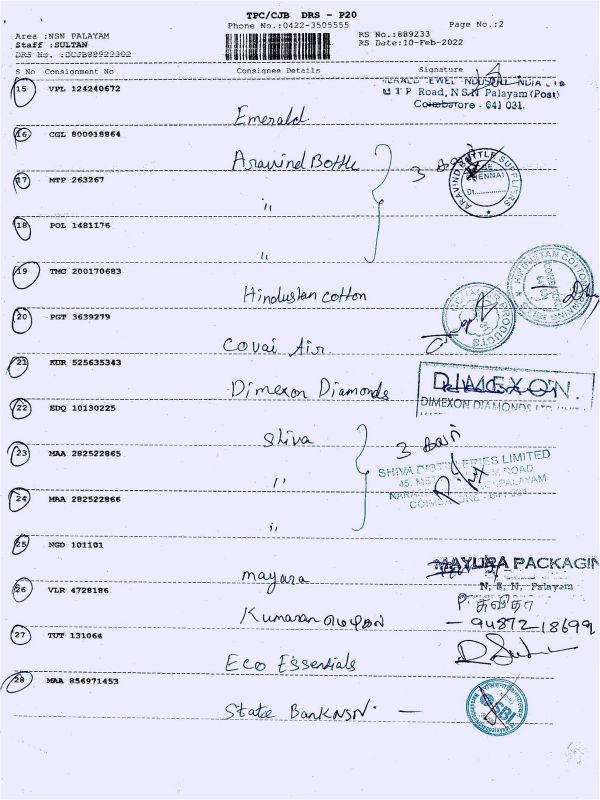 TPC/CJB DRS - P20
Phone No.:0422-3505555
Page No.:2
Area :NSN PALAYAM
Staff :SULTAN
RS No.:889233
RS Date:10-Feb-2022
S No Consignment No Consignee Details Signature
15 VPL 124240672
Emerald
M T P Road, N.S.N Palayam (Post)
Coimbatore - 641 031.
16 CGL 800018864
Aravind Bottle
3
ARAVIND BOTTLE SUPPLIERS
CHENNAI
17 MTP 263267
"
18 POL 1481176
"
19 TMG 200170683
Hindustan Cotton
20 PGT 3639279
Covai Air
PRODUCTS
21 KUR 525635343
Dimexon Diamonds
DIMEXON
DIMEXON DIAMONDS LTD
22 EDQ 10130225
Shiva
3
SHIVA DISTILLERIES LIMITED
ROAD
PALAYAM
23 MAA 282522865
"
24 MAA 282522866
"
25 NGO 101101
mayura
MAYURA PACKAGIN
N, S, N, Palayam
26 VLR 4728186
Kumaran
P. கவிதா
- 94872-18699
27 TUT 131064
Eco Essentials
28 MAA 856971453
State Bank NSN. -
SBI